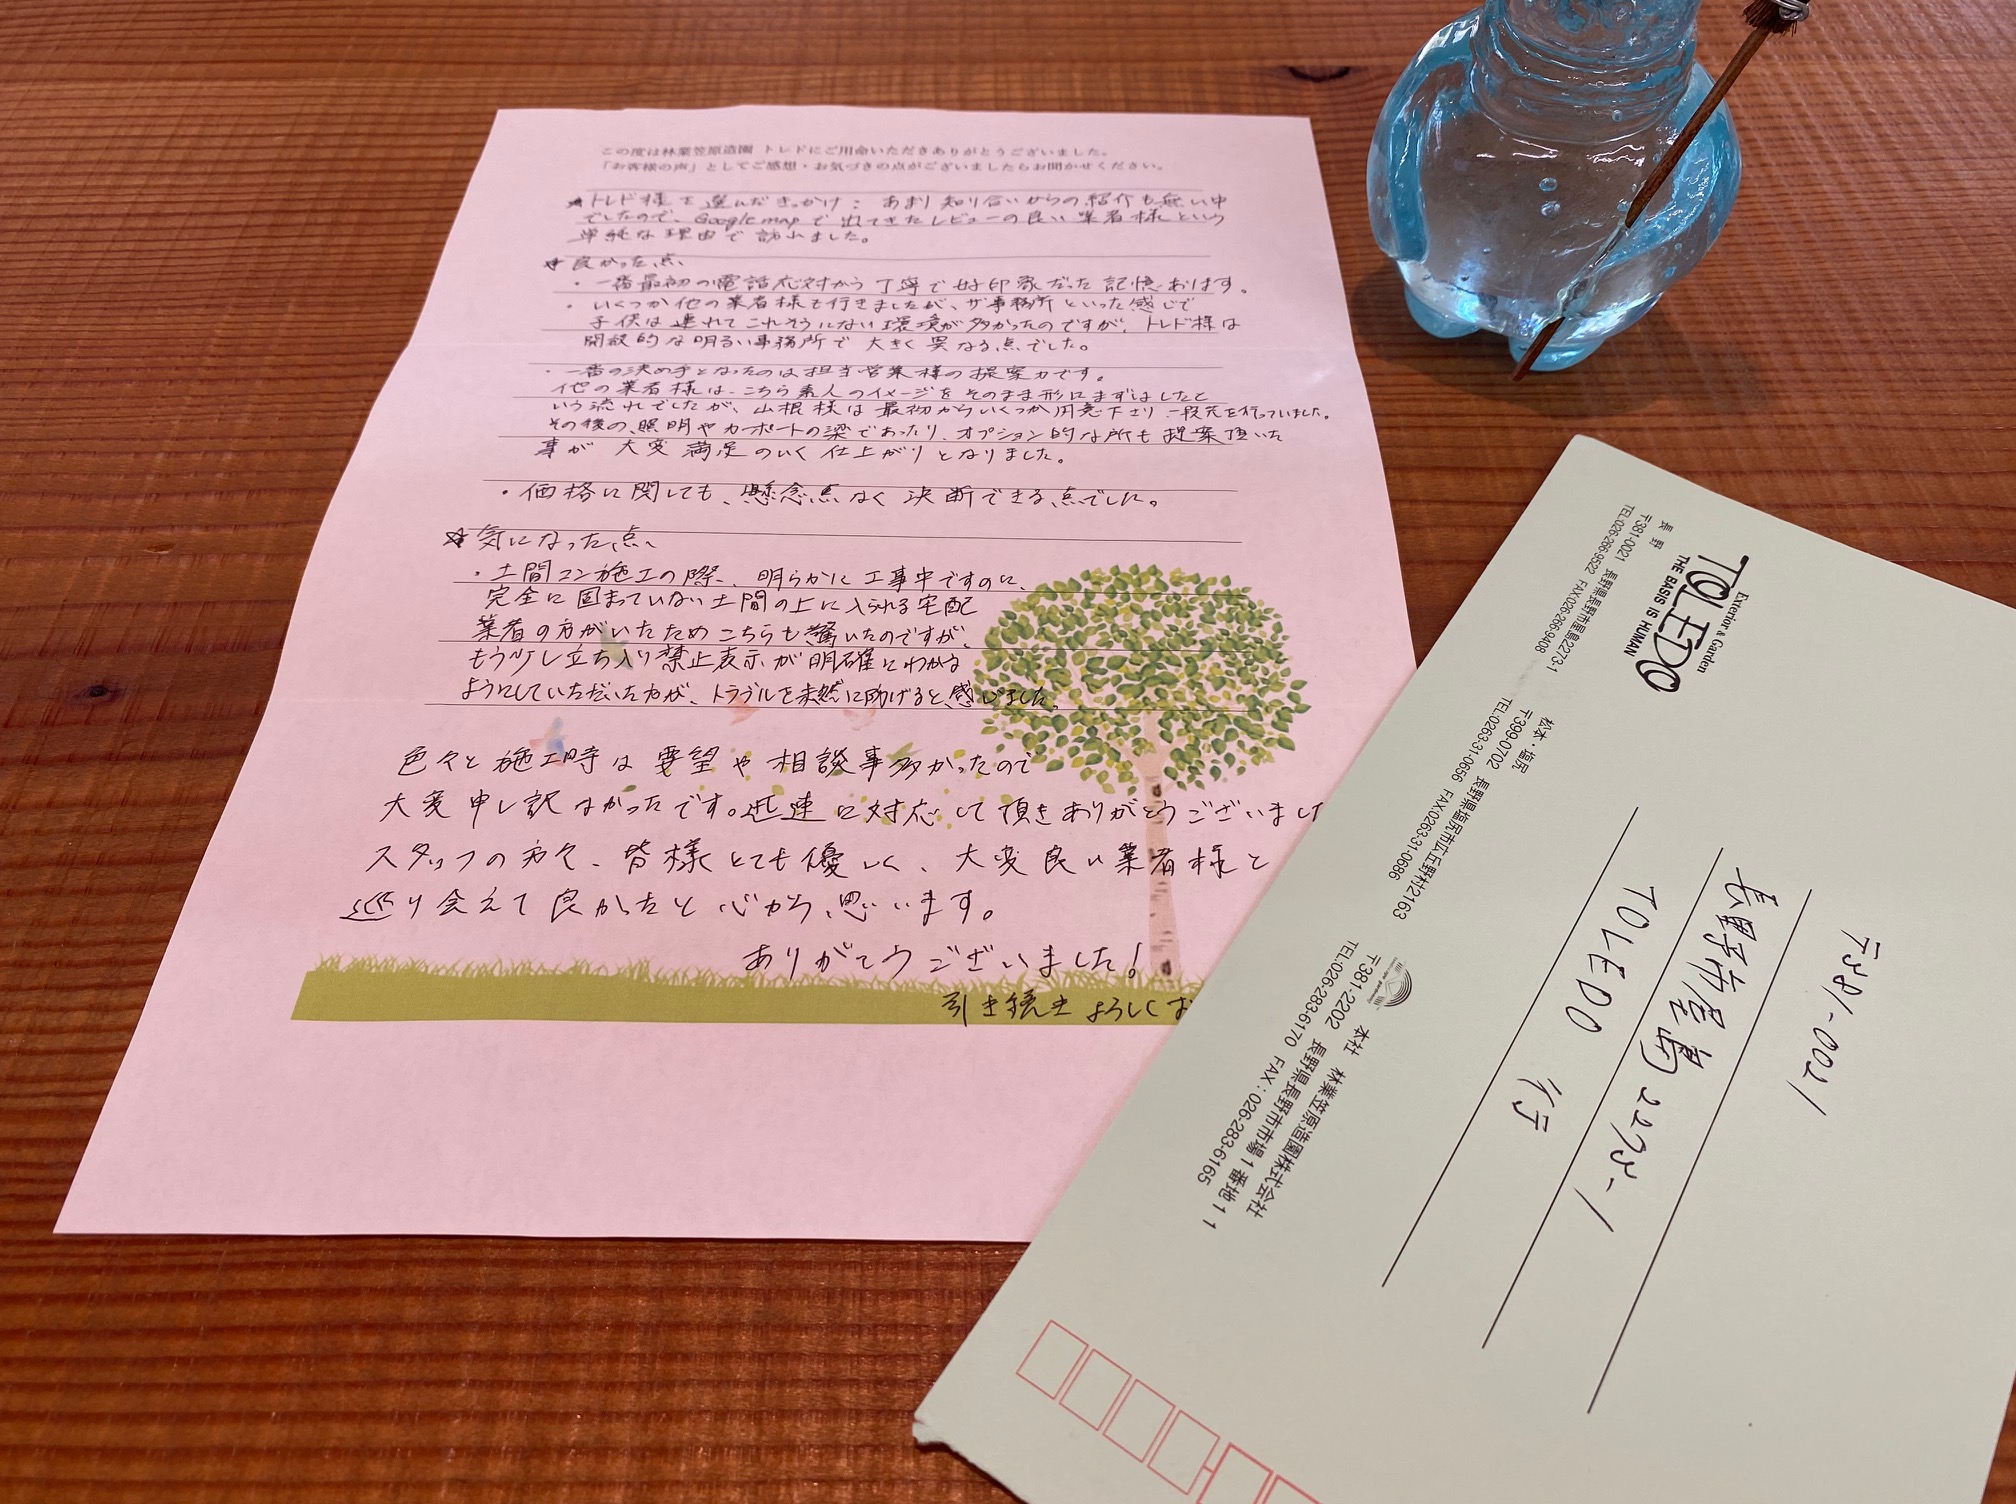 この度は林業笠原造園 トレドにご用命いただきありがとうございました。
「お客様の声」としてご感想・お気づきの点がございましたらお聞かせください。
★トレド様を選んだきっかけ: あまり知り合いからの紹介も無い中
でしたので、Google mapで出てきたレビューの良い業者様という
単純な理由で訪れました。
★良かった点
・一番最初の電話応対から丁寧で好印象だった記憶あります。
・いくつか他の業者様も行きましたが、ザ事務所といった感じで
子供は連れてこれそうにない環境が多かったのですが、トレド様は
開放的な明るい事務所で大きく異なる点でした。
・一番の決め手となったのは担当営業様の提案力です。
他の業者様は、こちら素人のイメージをそのまま形にまずはしたと
いう流れでしたが、山根様は最初からいくつか用意下さり一段先を行っていました。
その後の、照明やカーポートの梁であったり、オプション的な所も提案頂いた
事が大変満足のいく仕上がりとなりました。
・価格に関しても、懸念点なく決断できる点でした。
☆気になった点、
・土間コン施工の際、明らかに工事中ですのに、
完全に固まっていない土間の上に入られる宅配
業者の方がいたためこちらも驚いたのですが、
もう少し立ち入り禁止表示が明確にわかる
ようにしていただいた方が、トラブルを未然に防げると感じました。
色々と施工時は要望や相談事多かったので
大変申し訳なかったです。迅速に対応して頂きありがとうございまし
スタッフの方々、皆様とても優しく、大変良い業者様と
巡り会えて良かったと心から思います。
ありがとうございました!
引き続きよろしくお
Exterior & Garden
TOLEDO
THE BASIS IS HUMAN
長野
〒381-0021 長野県長野市屋島2273-1
TEL:026-266-9522 FAX:026-266-9408
松本・塩尻
〒399-0702 長野県塩尻市広丘野村2163
TEL:0263-31-0656 FAX:0263-31-0686
本社 林業笠原造園株式会社
〒381-2202 長野県長野市市場1番地11
TEL:026-283-6170 FAX:026-283-6165
〒381-0021
長野市屋島2273-1
TOLEDO 行